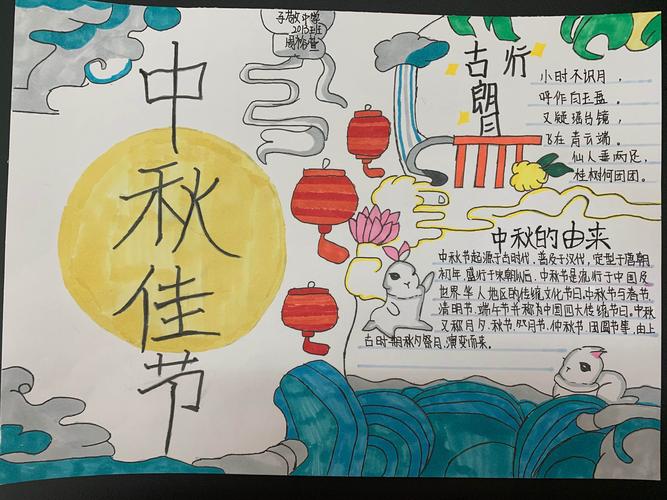 中秋佳节
中学
2013班
古朗月行
小时不识月，
呼作白玉盘。
又疑瑶台镜，
飞在青云端。
仙人垂两足，
桂树何团团。
中秋的由来
中秋节起源于古时代、普及于汉代，定型于唐朝
初年，盛行于宋朝以后。中秋节是流行于中国及
世界华人地区的传统文化节日，中秋节与春节
清明节、端午节并称为中国四大传统节日。中秋
又称月夕、秋节、祭月节、仲秋节、团圆节等，由上
古时期秋夕祭月演变而来。